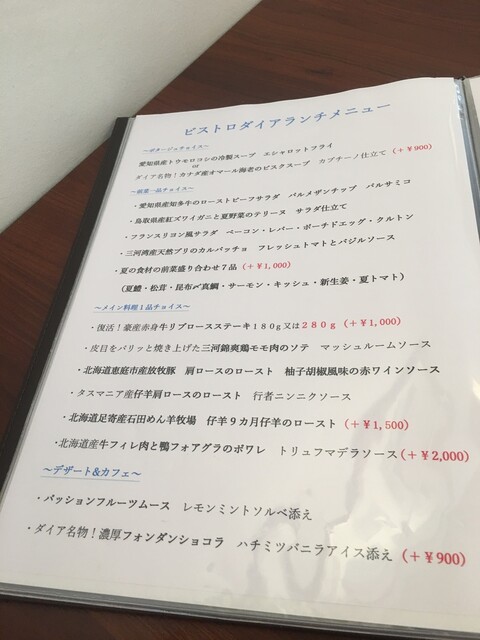 ビストロダイアランチメニュー
～ポタージュチョイス～
愛知県産トウモロコシの冷製スープ エシャロットフライ
or
ダイア名物！カナダ産オマール海老のビスクスープ カプチーノ仕立て（+￥900）
～前菜一品チョイス～
・愛知県産知多牛のローストビーフサラダ パルメザンチップ バルサミコ
・鳥取県産紅ズワイガニと夏野菜のテリーヌ サラダ仕立て
・フランスリヨン風サラダ ベーコン・レバー・ポーチドエッグ・クルトン
・三河湾産天然ブリのカルパッチョ フレッシュトマトとバジルソース
・夏の食材の前菜盛り合わせ７品（+￥1,000）
（夏鱧・松茸・昆布〆真鯛・サーモン・キッシュ・新生姜・夏トマト）
～メイン料理１品チョイス～
・復活！豪産赤身牛リブロースステーキ１８０ｇ又は２８０ｇ（+￥1,000）
・皮目をパリッと焼き上げた三河錦爽鶏モモ肉のソテ マッシュルームソース
・北海道恵庭市産放牧豚 肩ロースのロースト 柚子胡椒風味の赤ワインソース
・タスマニア産仔羊肩ロースのロースト 行者ニンニクソース
・北海道足寄産石田めん羊牧場 仔羊９カ月仔羊のロースト（+￥1,500）
・北海道産牛フィレ肉と鴨フォアグラのポワレ トリュフマデラソース（+￥2,000）
～デザート&カフェ～
・パッションフルーツムース レモンミントソルベ添え
・ダイア名物！濃厚フォンダンショコラ ハチミツバニラアイス添え（+￥900）